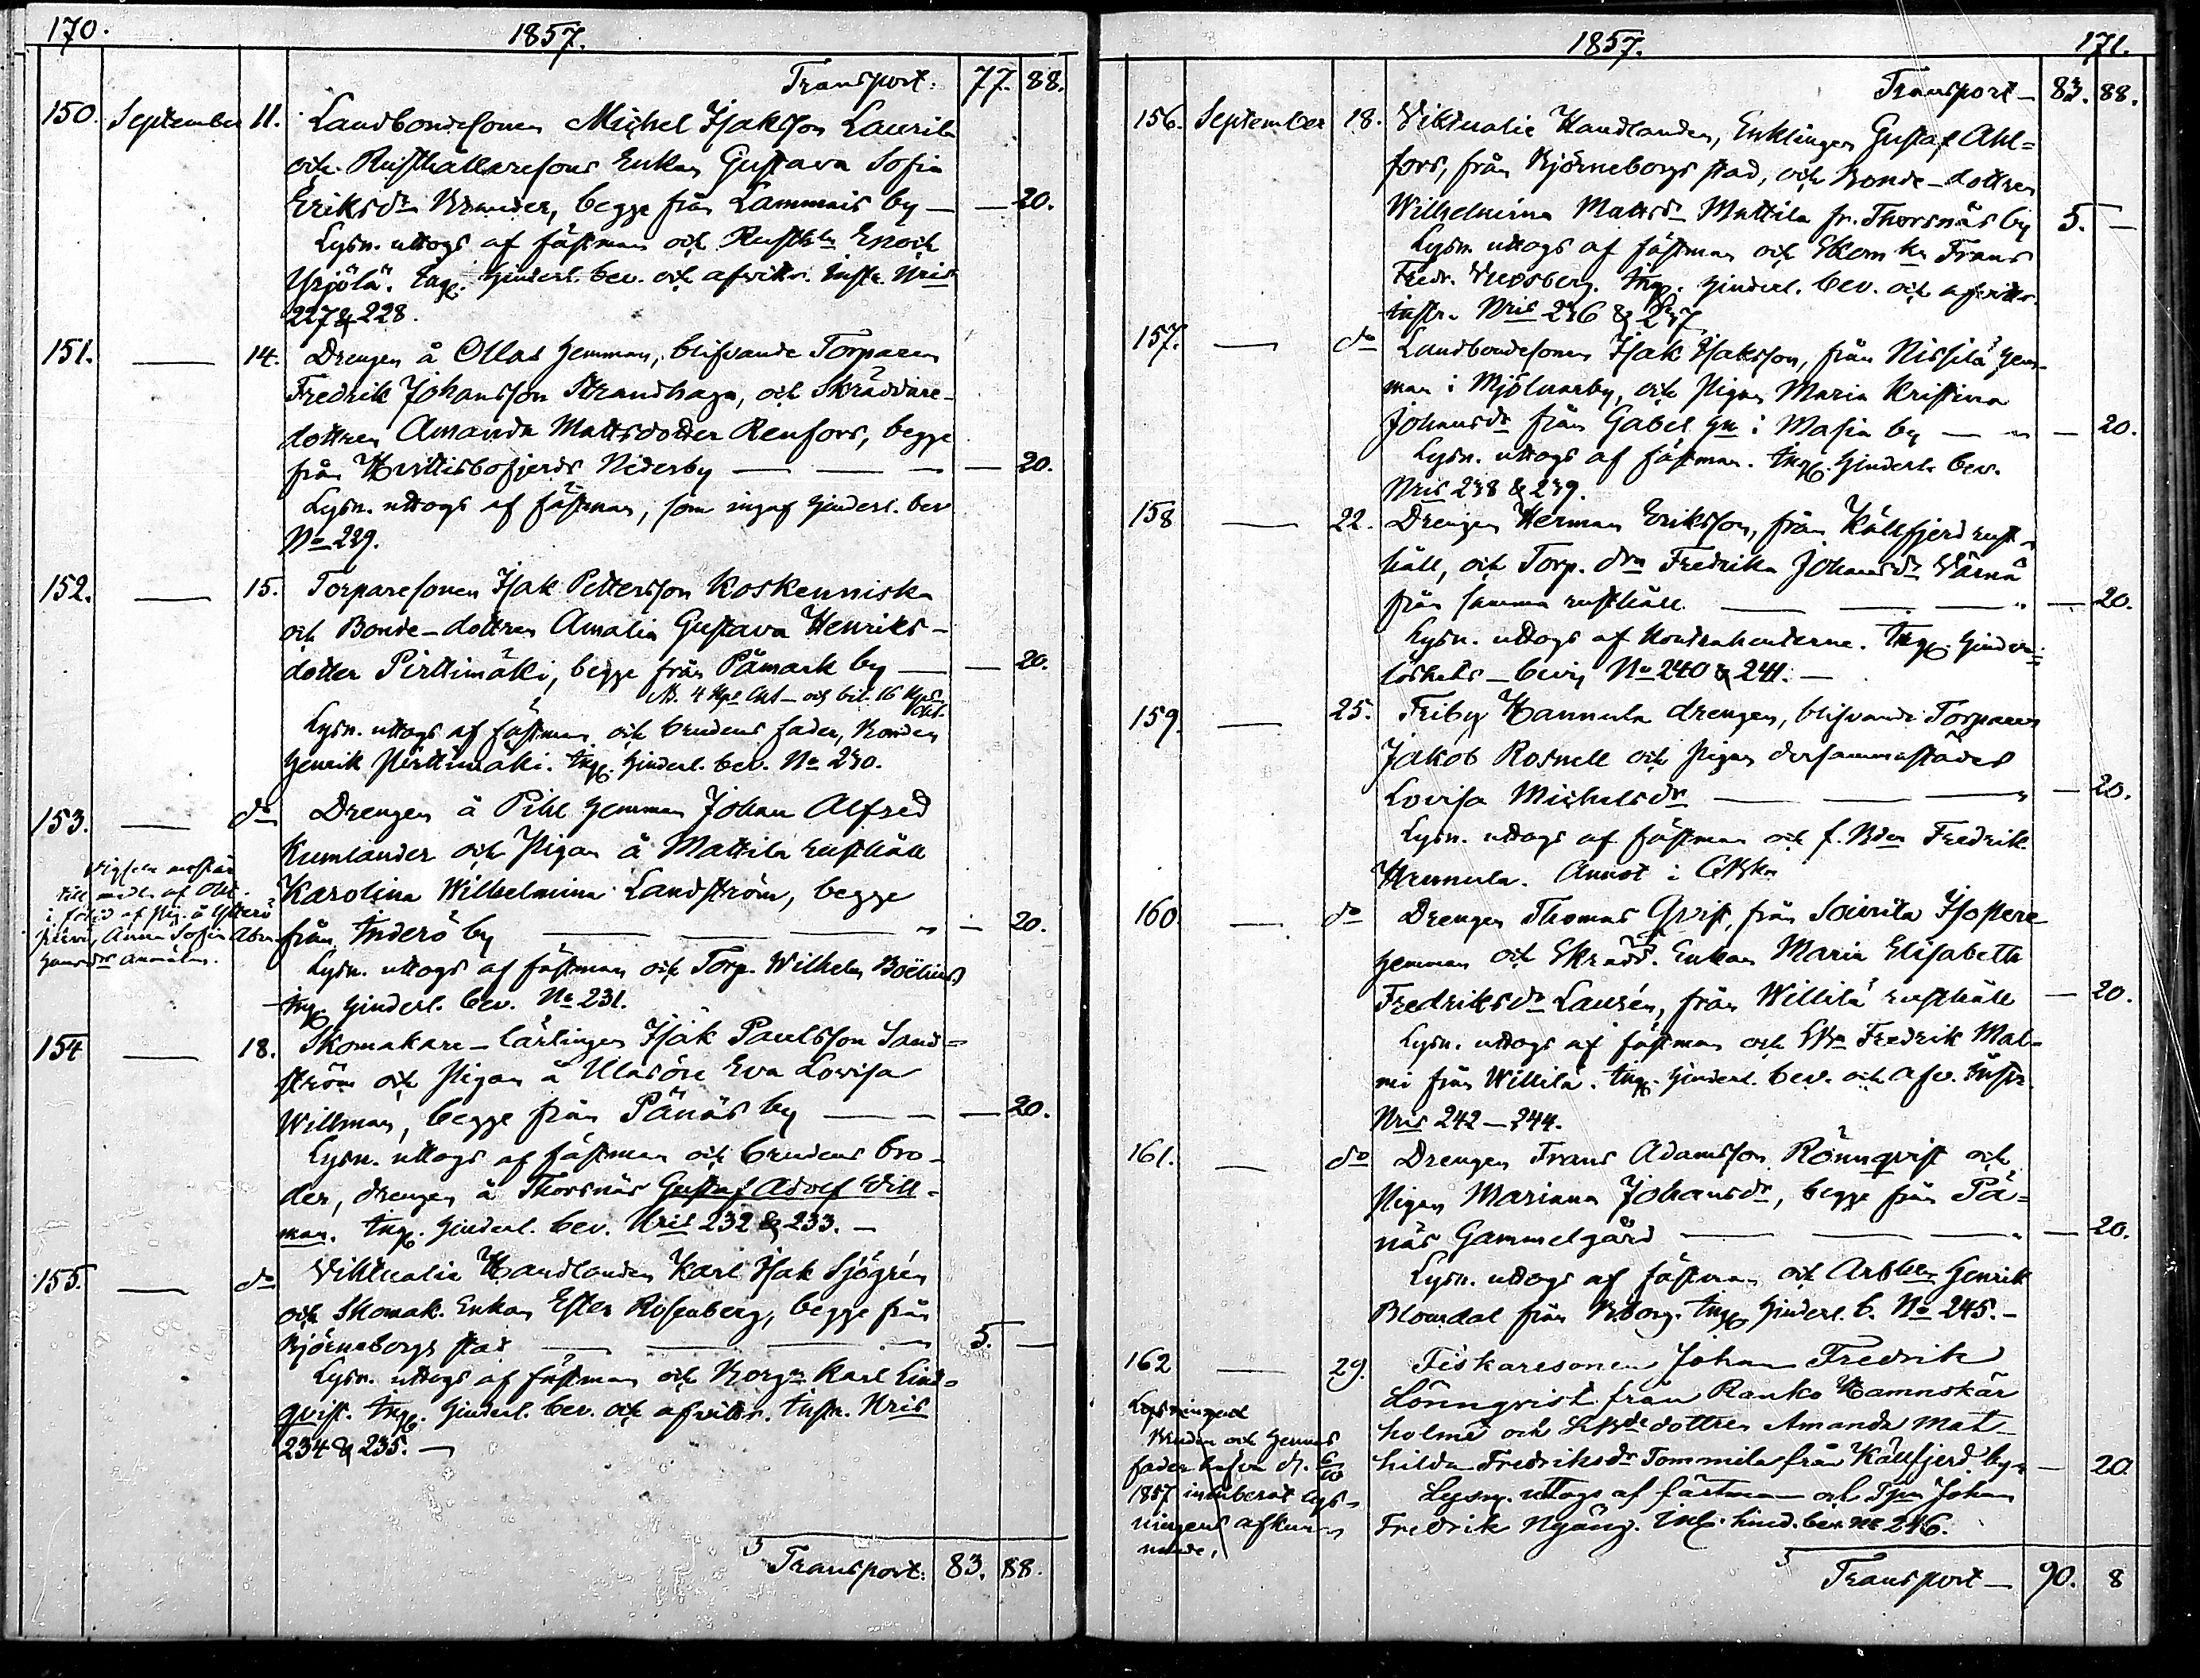 170.
1857.
Transport. 77. 88.
150. September 11. Landbondesonen Michel Isaksson Laurila
och Rusthållaresons Enkan Gustava Sofia
Eriksdr, begge från Lammais by — — 20.
Lysn. uttogs af fästman och Rusth. Enoch
Yrjölä. Ingg. hinderl. bev. och afvittr. instr. Nris
227 & 228.
151. — 14. Drengen å Ollas hemman, blifvande Torparen
Fredrik Johansson Strandhaga, och Skräddare-
dottren Amanda Mattsdotter Renfors, begge
från Hvittisbofjerds Nederby — — — 20.
Lysn. uttogs af fästman, som ingaf hinderl. bev
No 229.
152. — 15. Torparesonen Isak Pettersson Koskenniska
och Bonde-dottren Amalia Gustava Henriks-
dotter Pirttimäki, begge från Påmark by — — 20.
Lysn. uttogs af fästman och brudens fader, Bonden
Henrik Pirttimäki. Ingg. hinderl. bev. No 230.
153. — do Drengen å Pihl hemman Johan Alfred
Kumlander och Pigan å Mattila rusthåll
Karolina Wilhelmina Landström, begge
från Inderö by — — — " — 20.
Lysn. uttogs af fästman och Torp. Wilhelm Boëlius
Ingg. hinderl. bev. No 231.
Anna Sofia
154 — 18. Skomakare-lärlingen Isak Paulsson Sand-
ström och Pigan å Ulasöre Eva Lovisa
Willman, begge från Pånäs by — — — 20.
Lysn. uttogs af fästman och brudens bro-
der, drengen å Thorsnäs Gustaf Adolf Will-
man. Ingg. hinderl. bev. Nris 232 & 233. —
155. — do Viktualie Handlanden Karl Isak Sjögrén
och Skomak. Enkan Ester Rosenberg, begge från
Björneborgs stad — — — 5. —
Lysn. uttogs af fästman och Borgn Karl Lind-
qvist. Ingg. hinderl. bev. och afvittr. instr. Nris
234 & 235. —
Transport. 83. 88.
1857. 171.
Transport — 83. 88.
156. September 18. Viktualie Handlanden, Enklingen Gustaf Ahl=
fors, från Björneborgs stad, och Bonde-dottren
Wilhelmina Mattsdr Mattila fr. Thorsnäs by 5. —
Lysn. uttogs af fästman och Skom. Frans
Fredr. Ingg. hinderl. bev. och afvittr.
instr. Nris 236 & 237
157. — do Landbondesonen Isak Isaksson, från Nissilä hem-
man i Mjölnarby, och Pigan Maria Kristina
Johansdr från Gabel hn i Masia by — " — 20.
Lysn. uttogs af fästman. Ingg. hinderl. bev.
Nris 238 & 239.
158 — 22. Drengen Herman Eriksson, från Källfjerd rust-
håll, och Torp. drn Fredrika Johansdr Värnä
från samma rusthåll — — — " — 20.
Lysn. uttogs af Kontrahenterne. Ingg. hinder-
löshets-bevis No 240 & 241. —
159. — 25. Friby Hannula drengen, blifvande Torparen
Jakob Rosnell och Pigan dersammastädes
Lovisa Michelsdr — — — " — 20.
Lysn. uttogs af fästman och f. Bden Fredrik
Hannula. Annot i
160. — do Drengen Thomas Qvist, från Soinila Isopere
hemman och Skrädd. Enkan Maria Elisabeth
Fredriksdr Laurén, från Willilä rusthåll — 20.
Lysn. uttogs af fästman och Fredrik Mal-
mi från Willilä. Ingg. hinderl. bev. och afv. instr.
Nris 242 — 244.
161. — do Drengen Frans Adamsson Rönnqvist och
Pigan Mariana Johansdr, begge från På=
näs Gammelgård — — — " — 20.
Lysn. uttogs af fästman och Arbkn Henrik
Blomdal från Bborg. Ingg. hinderl. b. No 245. —
162 — 29. Fiskaresonen Johan Fredrik
Lönnqvist från Ranko Hamnskär
holme och dottren Amanda Mat-
hilda Fredriksdr Tommila från Källfjerd by — 20.
Lysn. uttogs af fästman och Johan
Fredrik Nyäng. hind. bev. No 246.
Lysningen
Bruden och hennes
fader hafva d.
1857 inhiberat lys-
ningens afkun-
nande.
Transport — 90. 8